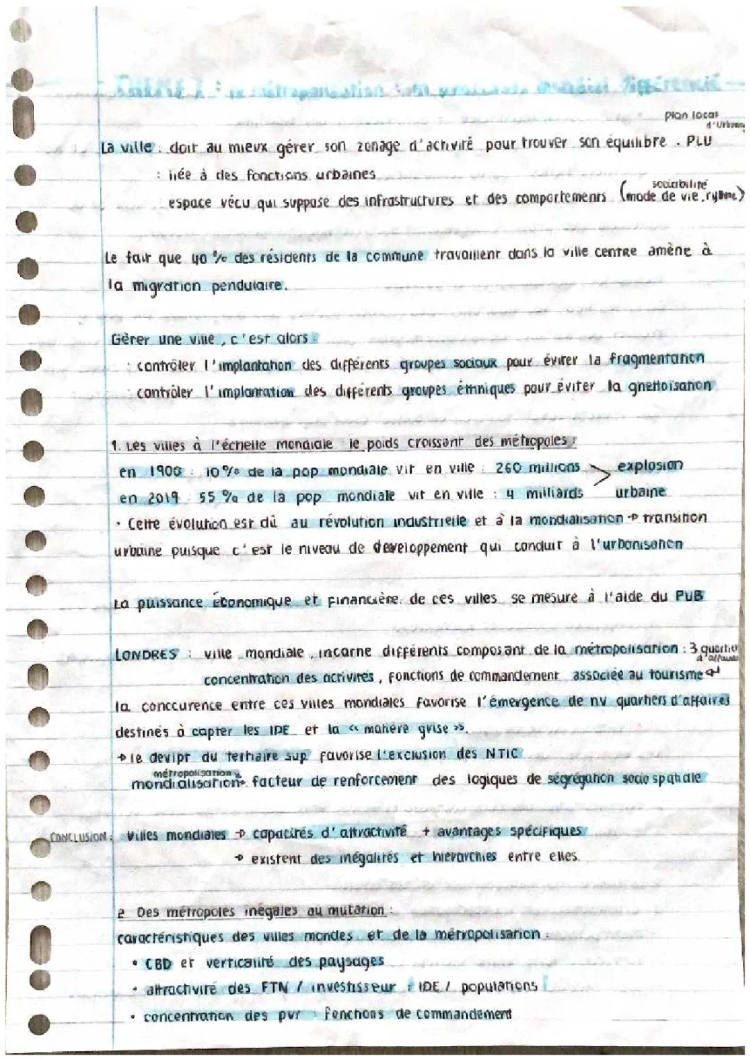 THEME 1 : la métropolisation : un processus mondial différencié
plan local d'Urbanis
La ville : doit au mieux gérer son zonage d'activité pour trouver son équilibre . PLU
: liée à des fonctions urbaines
sociabilité
espace vécu qui suppose des infrastructures et des comportements (mode de vie, rythme)
Le fait que 40 % des résidents de la commune travaillent dans la ville centre amène à
la migration pendulaire.
Gérer une ville, c'est alors :
: contrôler l'implantation des différents groupes sociaux pour éviter la fragmentation
: contrôler l'implantation des différents groupes éthniques pour éviter la ghettoïsation
1. Les villes à l'échelle mondiale le poids croissant des métropoles :
en 1900 : 10 % de la pop mondiale vit en ville : 260 millions > explosion
en 2019 : 55 % de la pop mondiale vit en ville : 4 milliards urbaine
• Cette évolution est dû au révolution industrielle et à la mondialisation → transition
urbaine puisque c'est le niveau de developpement qui conduit à l'urbanisation
La puissance économique et financière de ces villes se mesure à l'aide du PUB
LONDRES : ville mondiale, incarne différents composant de la métropolisation : 3 quartier d'affaires
concentration des activités, fonctions de commandement associée au tourisme ↲
la conccurence entre ces villes mondiales favorise l'émergence de nv quartiers d'affaires
destinés à capter les IDE et la « matière grise ».
→ le devlpt du tertiaire sup favorise l'exclusion des NTIC
métropolisation &
mondialisation → facteur de renforcement des logiques de ségrégation socio spatiale
CONCLUSION : Villes mondiales → capacités d'attractivité + avantages spécifiques
→ existent des inégalités et hiérarchies entre elles.
2 Des métropoles inégales au mutation :
caractéristiques des villes mondes et de la métropolisation :
• CBD et verticalité des paysages
• attractivité des FTN / investisseur : IDE / populations
• concentration des pvr : fonctions de commandement